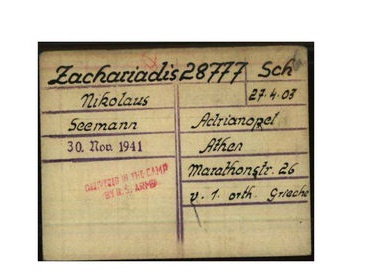 Zachariadis 28777 Sch
Nikolaus 27.4.03
Seemann Adrianopel
30. Nov. 1941 Athen
Marathonstr. 26
CAPTURED IN THE CAMP
BY U. S. ARMY
v. 1. orth. Grieche